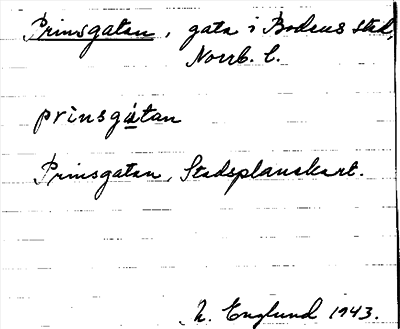 Prinsgatan, gata i Bodens stad,
Norrb. l.
prinsgátan
Prinsgatan, Stadsplanskart.
h. Englund 1943.